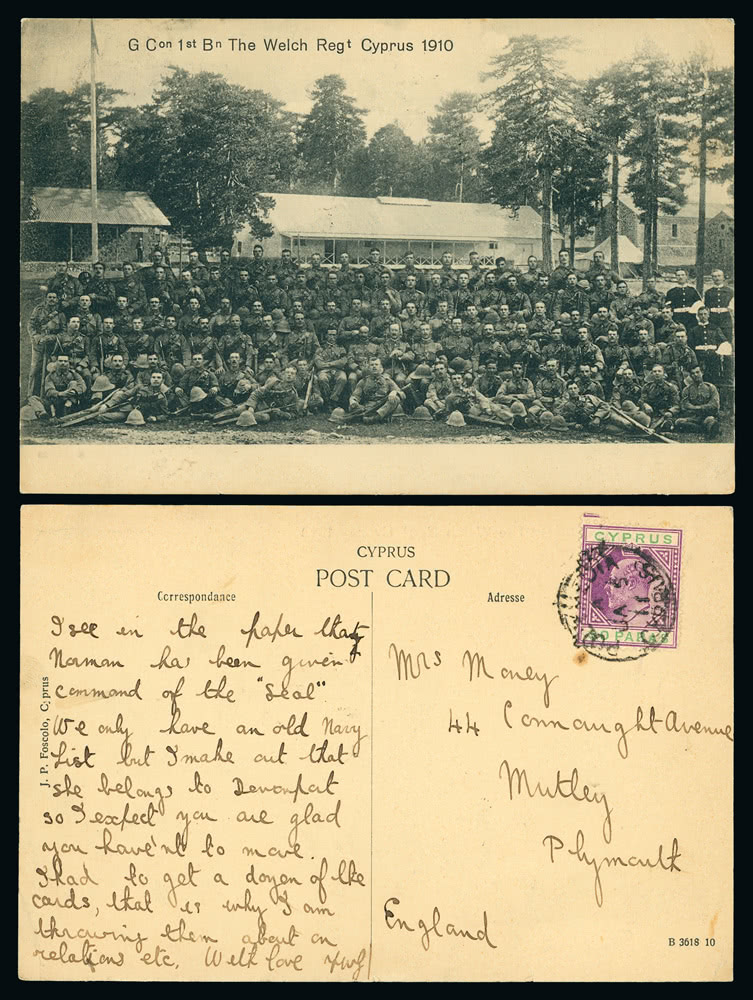 G Con 1st Bn The Welch Regt Cyprus 1910
CYPRUS
POST CARD
Correspondance
Adresse
CYPRUS
30 PARAS
I see in the paper that
Norman has been given
command of the "Seal".
We only have an old Navy
List but I make out that
she belongs to Devonport
so I expect you are glad
you have'nt to move.
I had to get a dozen of the
cards, that is why I am
throwing them about on
relations etc. With love
J. P. Foscolo, Cyprus
Mrs Money
44 Connaught Avenue
Mutley
Plymouth
England
B 3618 10